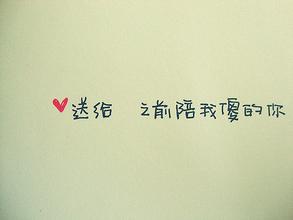 送给 之前陪我傻的你